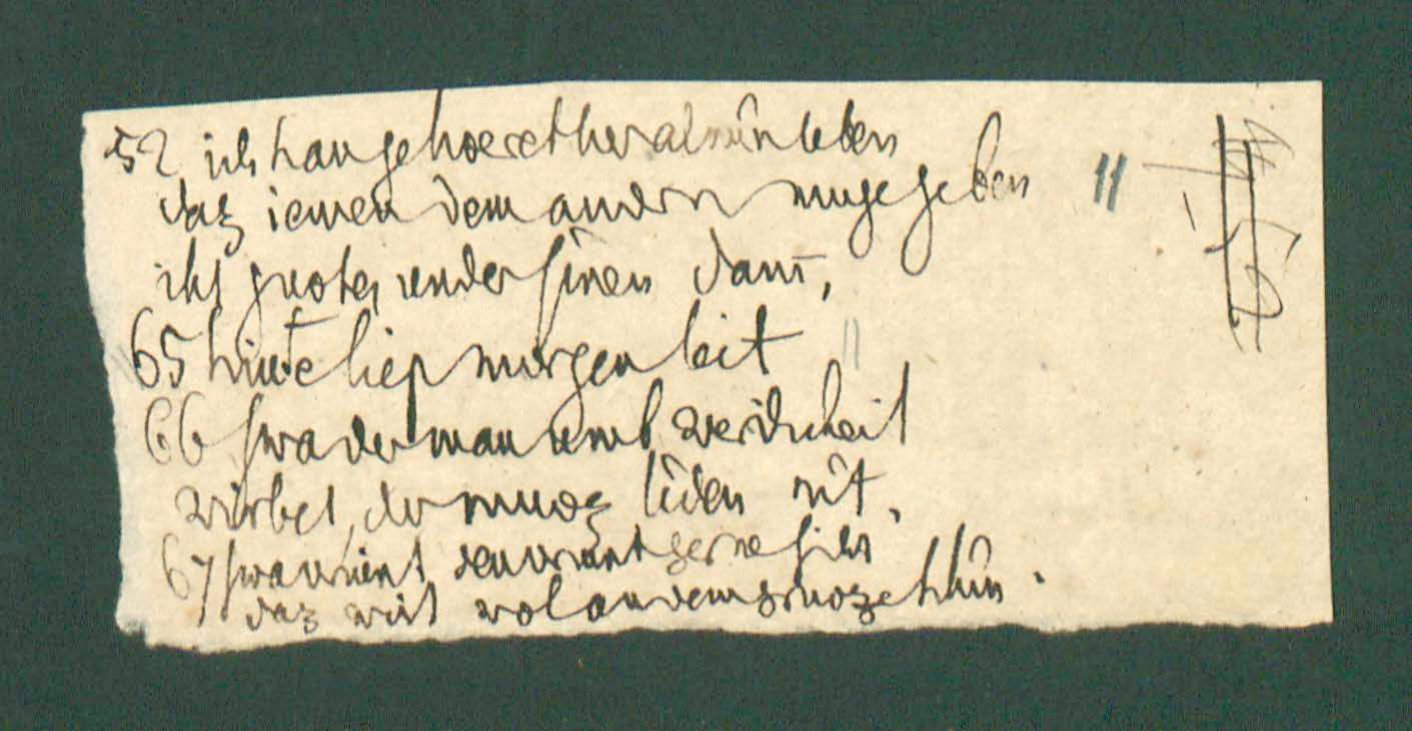 52 ich han gehoeret her al mîn leben
daz iemen dem andern muge geben
iht guotes under sînen danc,
65 hiute liep morgen leit
66 swa der man umb werdicheit
wirbet, der muoz lîden nît.
67 swa vriunt den vriunt gerne siht
daz wirt wol an dem gruoze schîn.